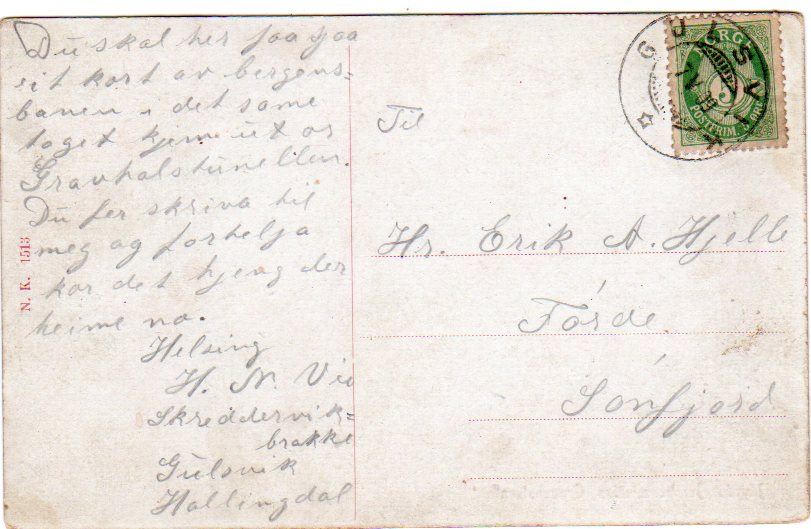 Du skal her faa sjaa
eit kort av bergens-
banen i det same
toget kjem ut or
Gravhalstunellen.
Du fer skriva til
meg og fortelja
kor det hjeng der
heime no.
Helsing
H. N. Vie
Skreddervik-
brakke
Gulsvik
Hallingdal
N. K. 1513
GULSVIK
NORGE
5
POSTFRIM. 5 ØRE
Til
Hr. Erik A. Hjelle
Førde
Sønfjord